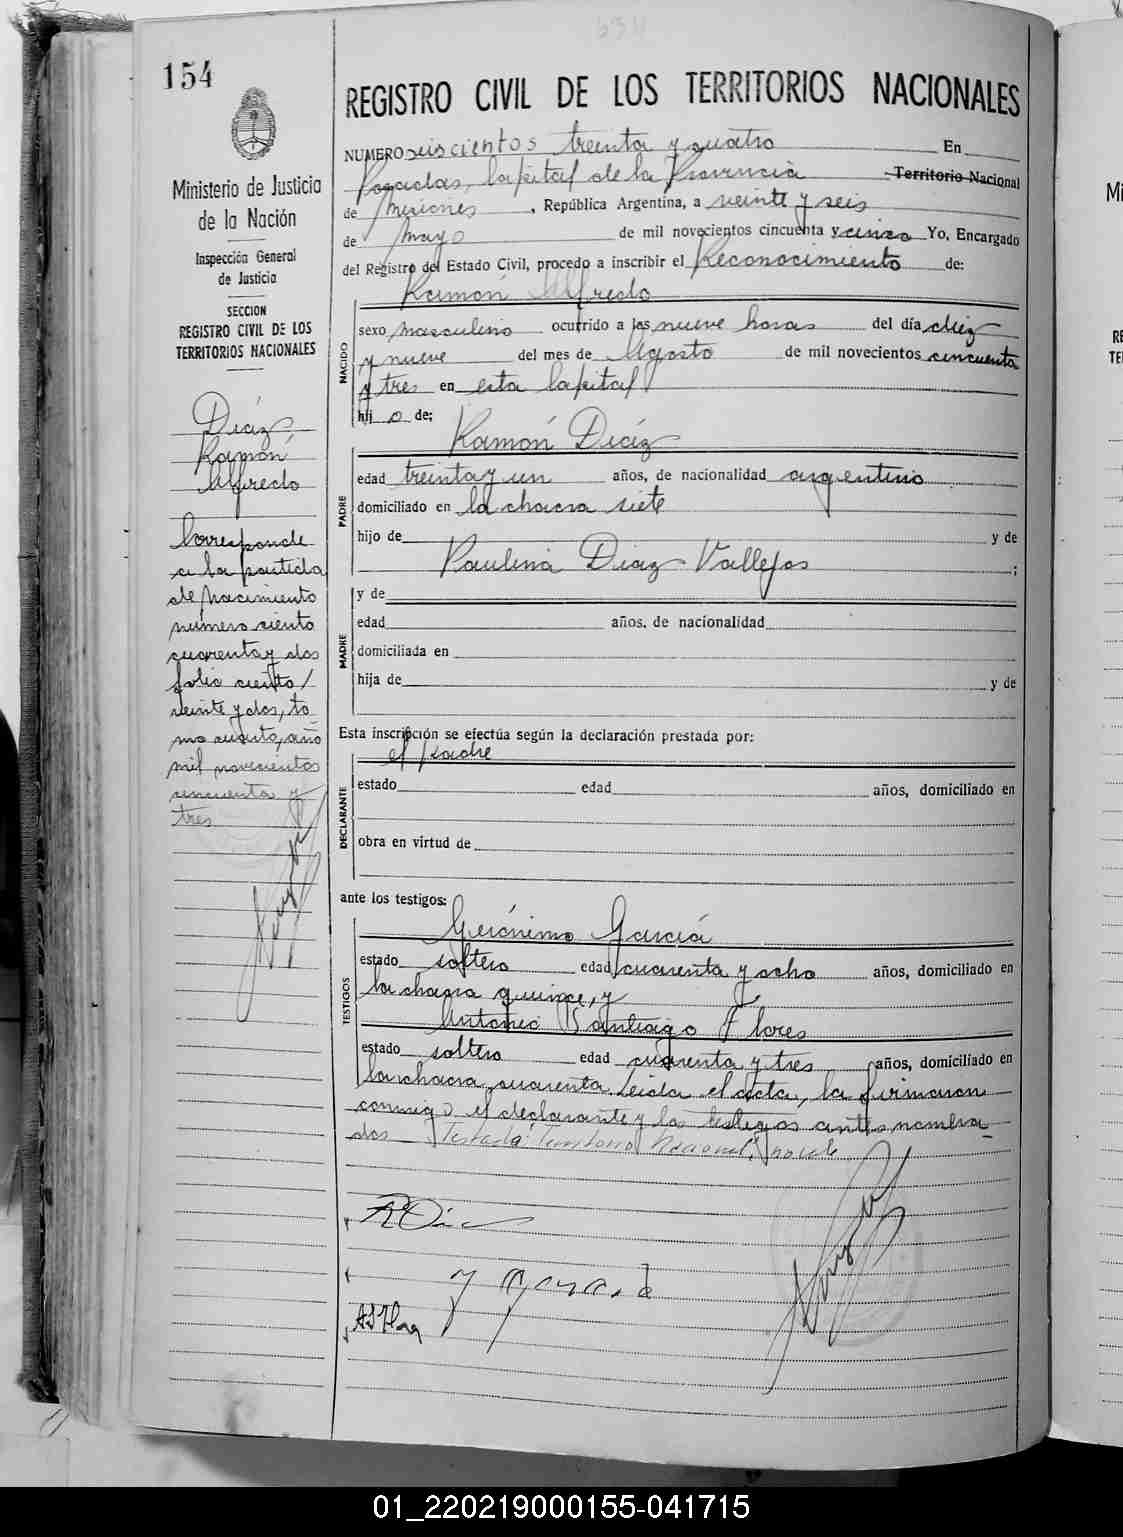 634
154
REGISTRO CIVIL DE LOS TERRITORIOS NACIONALES
Ministerio de Justicia
de la Nación
Inspección General
de Justicia
SECCION
REGISTRO CIVIL DE LOS
TERRITORIOS NACIONALES
Díaz
Ramón
Alfredo
Corresponde
a la partida
de nacimiento
número ciento
cuarenta y dos
folio ciento /
veinte y dos, to
mo cuarto, año
mil novecientos
cincuenta y
tres
NUMERO seiscientos treinta y cuatro En
Posadas, Capital de la Provincia Territorio Nacional
de Misiones, República Argentina, a veinte y seis
de Mayo de mil novecientos cincuenta y cinco Yo, Encargado
del Registro del Estado Civil, procedo a inscribir el Reconocimiento de:
Ramón Alfredo
NACIDO
sexo masculino ocurrido a las nueve horas del día diez
y nueve del mes de Agosto de mil novecientos cincuenta
y tres en esta Capital
hij o de;
Ramón Díaz
PADRE
edad treinta y un años, de nacionalidad argentino
domiciliado en la chacra siete
hijo de y de
Paulina Diaz Vallejos ;
MADRE
y de
edad años, de nacionalidad
domiciliada en
hija de y de
Esta inscripción se efectúa según la declaración prestada por:
el padre
DECLARANTE
estado edad años, domiciliado en
obra en virtud de
ante los testigos:
Gerónimo García
TESTIGOS
estado soltero edad cuarenta y ocho años, domiciliado en
la chacra quince, y
Antonio Santiago Flores
estado soltero edad cuarenta y tres años, domiciliado en
la chacra cuarenta. Leida el acta, la firmaron
conmigo el declarante y los testigos antes nombra
dos Testado: Territorio Nacional; no vale
01_220219000155-041715